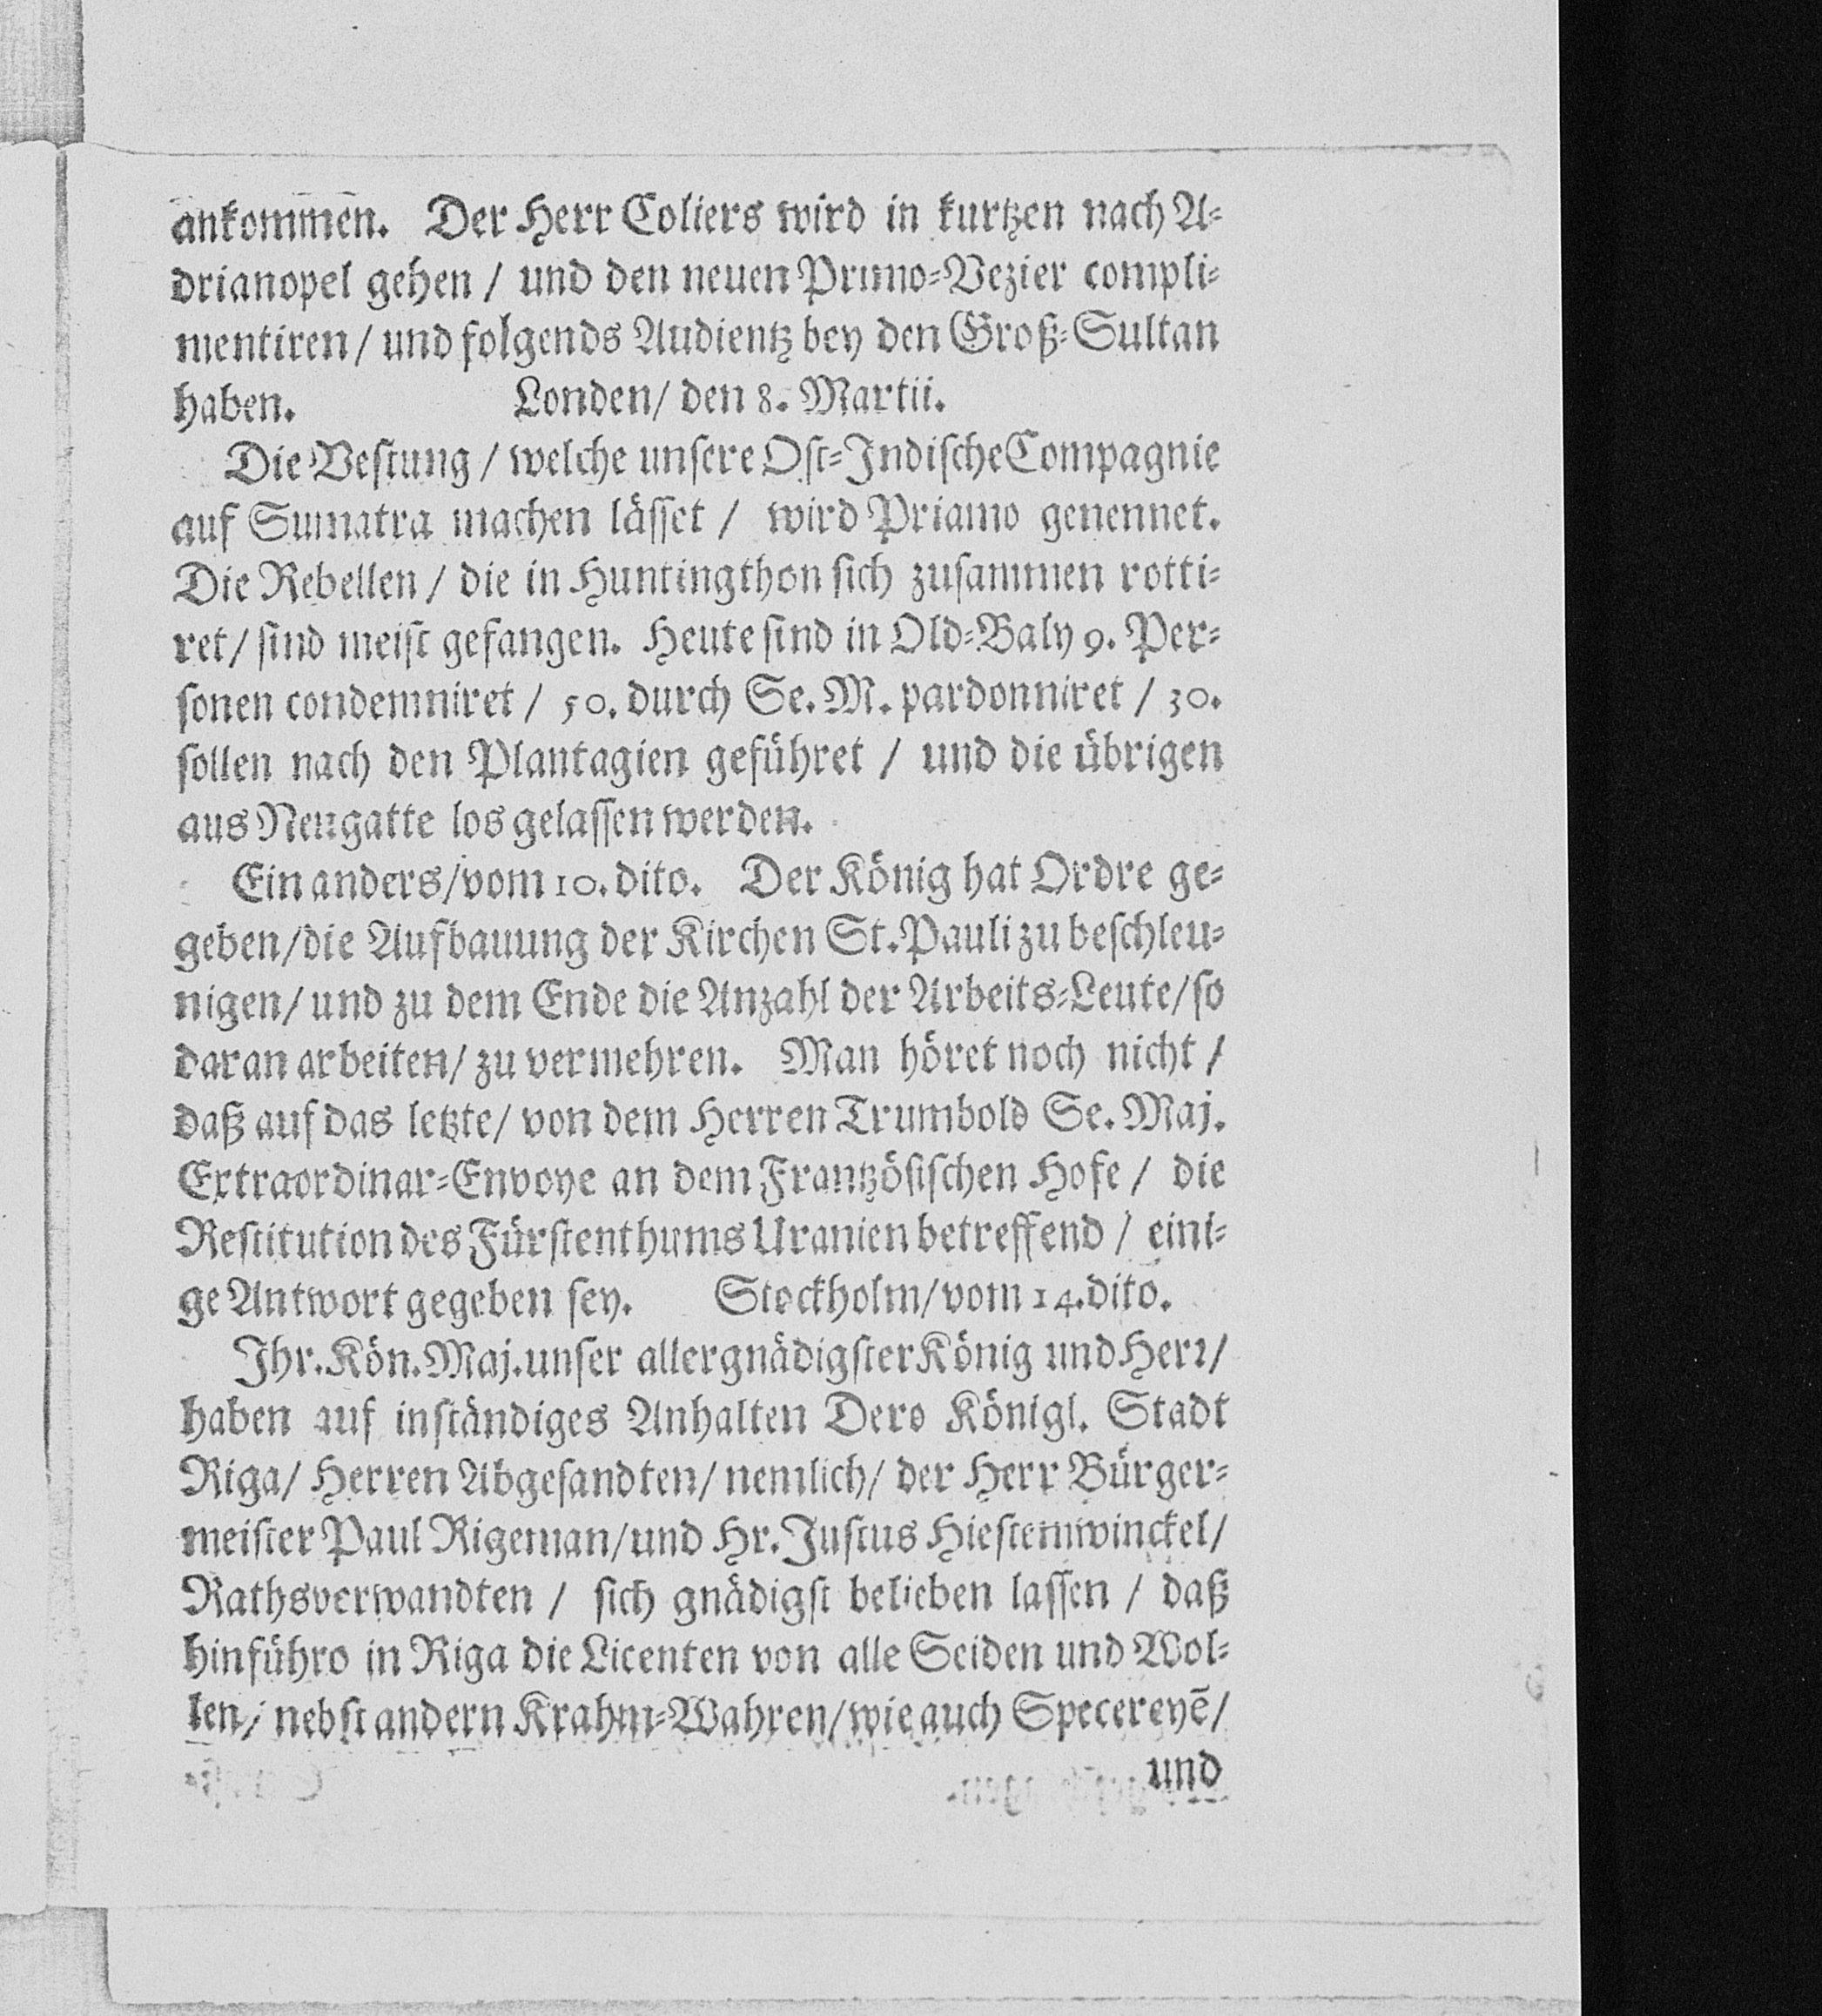 ankommen. Der Herr Coliers wird in kurtzen nach A-
drianopel gehen / und den neuen Primo-Vezier compli-
mentiren / und folgends Audientz bey den Groß-Sultan
haben. Londen / den 8. Martii.
Die Vestung / welche unsere Ost-Indische Compagnie
auf Sumatra machen lässet / wird Priamo genennet.
Die Rebellen / die in Huntingthon sich zusammen rotti-
ret / sind meist gefangen. Heute sind in Old-Baly 9. Per-
sonen condemniret / 50. durch Se. M. pardonniret / 30.
sollen nach den Plantagien geführet / und die übrigen
aus Neugatte los gelassen werden.
Ein anders / vom 10. dito. Der König hat Ordre ge-
geben / die Aufbauung der Kirchen St. Pauli zu beschleu-
nigen / und zu dem Ende die Anzahl der Arbeits-Leute / so
daran arbeiten / zu vermehren. Man höret noch nicht /
daß auf das letzte / von dem Herren Trumbold Se. Maj.
Extraordinar-Envoye an dem Frantzösischen Hofe / die
Restitution des Fürstenthums Uranien betreffend / eini-
ge Antwort gegeben sey. Stockholm / vom 14. dito.
Ihr. Kön. Maj. unser allergnädigster König und Herr /
haben auf inständiges Anhalten Dero Königl. Stadt
Riga / Herren Abgesandten / nemlich / der Herr Bürger-
meister Paul Rigeman / und Hr. Justus Hiestemwinckel /
Rathsverwandten / sich gnädigst belieben lassen / daß
hinführo in Riga die Licenten von alle Seiden und Wol-
len / nebst andern Krahm-Wahren / wie auch Specereyē /
und